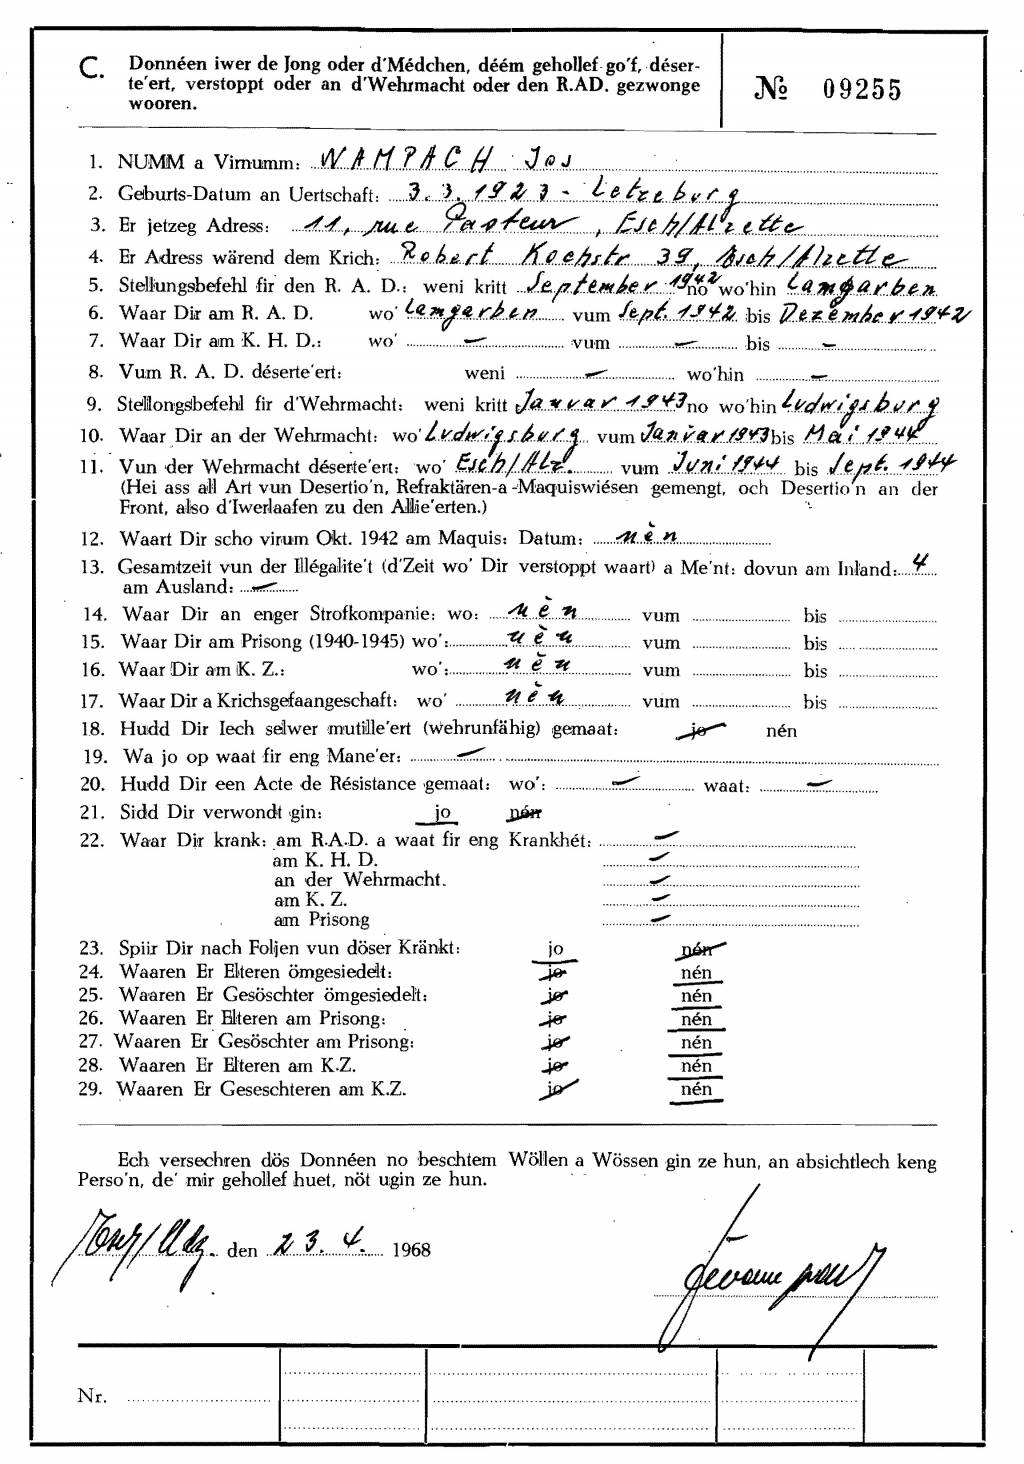 C. Donnéen iwer de Jong oder d'Médchen, déém gehollef go'f, déser-
te'ert, verstoppt oder an d'Wehrmacht oder den R.AD. gezwonge
wooren.
№ 09255
1. NUMM a Virnumm: WAMPACH Jos
2. Geburts-Datum an Uertschaft: 3.3.1923 - Letzeburg
3. Er jetzeg Adress: 11, rue Pasteur, Esch/Alzette
4. Er Adress wärend dem Krich: Robert Kochstr 39, Esch/Alzette
5. Stellungsbefehl fir den R. A. D.: weni kritt September 1942 no wo'hin Langarben
6. Waar Dir am R. A. D. wo' Langarben vum Sept. 1942 bis Dezember 1942
7. Waar Dir am K. H. D.: wo' — vum — bis —
8. Vum R. A. D. déserte'ert: weni — wo'hin —
9. Stellongsbefehl fir d'Wehrmacht: weni kritt Januar 1943 no wo'hin Ludwigsburg
10. Waar Dir an der Wehrmacht: wo' Ludwigsburg vum Januar 1943 bis Mai 1944
11. Vun der Wehrmacht déserte'ert: wo' Esch/Alz. vum Juni 1944 bis Sept. 1944
(Hei ass all Art vun Desertio'n, Refraktären-a-Maquiswiésen gemengt, och Desertio'n an der
Front, also d'Iwerlaafen zu den Allie'erten.)
12. Waart Dir scho virum Okt. 1942 am Maquis: Datum: nèn
13. Gesamtzeit vun der Illégalite't (d'Zeit wo' Dir verstoppt waart) a Me'nt: dovun am Inland: 4
am Ausland: —
14. Waar Dir an enger Strofkompanie: wo: nèn vum bis
15. Waar Dir am Prisong (1940-1945) wo': nèn vum bis
16. Waar Dir am K. Z.: wo': nèn vum bis
17. Waar Dir a Krichsgefaangeschaft: wo' nèn vum bis
18. Hudd Dir Iech selwer mutille'ert (wehrunfähig) gemaat: jo nén
19. Wa jo op waat fir eng Mane'er: —
20. Hudd Dir een Acte de Résistance gemaat: wo': — waat: —
21. Sidd Dir verwondt gin: jo nén
22. Waar Dir krank: am R.A.D. a waat fir eng Krankhét: —
am K. H. D. —
an der Wehrmacht. —
am K. Z. —
am Prisong —
23. Spiir Dir nach Foljen vun döser Kränkt: jo nén
24. Waaren Er Elteren ömgesiedelt: jo nén
25. Waaren Er Gesöschter ömgesiedelt: jo nén
26. Waaren Er Elteren am Prisong: jo nén
27. Waaren Er Gesöschter am Prisong: jo nén
28. Waaren Er Elteren am K.Z. jo nén
29. Waaren Er Geseschteren am K.Z. jo nén
Ech versechren dös Donnéen no beschtem Wöllen a Wössen gin ze hun, an absichtlech keng
Perso'n, de' mir gehollef huet, nöt ugin ze hun.
Esch/Alz. den 23.4. 1968
Nr.